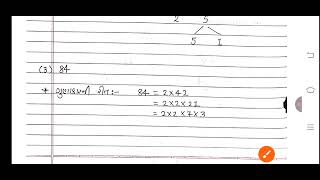 2 5
5 1
(3) 84
* ગુણાકારની રીત:- 84 = 2×42
= 2×2×21
= 2×2×7×3